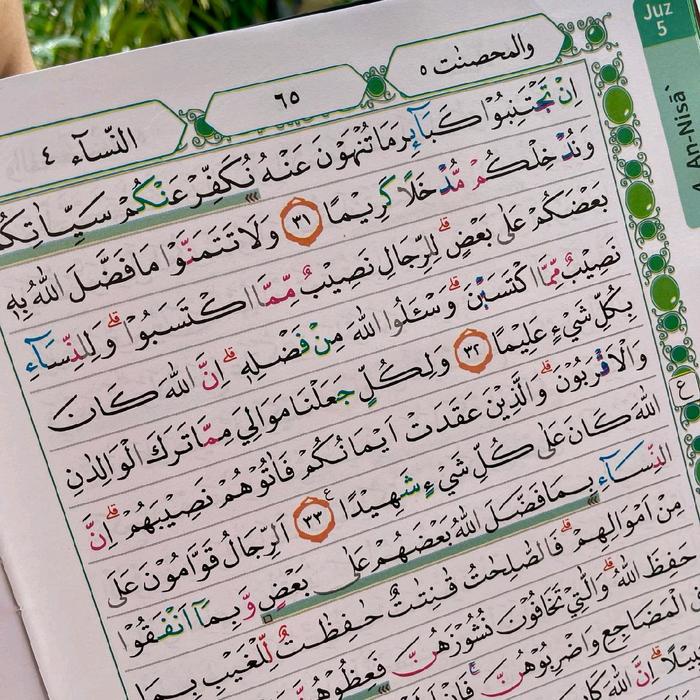 Juz 5
An-Nisā`
والمحصنت ٥
٦٥
النّسآء ٤
اِنْ تَجْتَنِبُوْا كَبَاۤىِٕرَ مَا تُنْهَوْنَ عَنْهُ نُكَفِّرْ عَنْكُمْ سَيِّاٰتِكُمْ
وَنُدْخِلْكُمْ مُّدْخَلًا كَرِيْمًا ٣١ وَلَا تَتَمَنَّوْا مَا فَضَّلَ اللّٰهُ بِهٖ
بَعْضَكُمْ عَلٰى بَعْضٍ ۗ لِلرِّجَالِ نَصِيْبٌ مِّمَّا اكْتَسَبُوْا ۗ وَلِلنِّسَاۤءِ
نَصِيْبٌ مِّمَّا اكْتَسَبْنَ ۗ وَسْـَٔلُوا اللّٰهَ مِنْ فَضْلِهٖ ۗ اِنَّ اللّٰهَ كَانَ
بِكُلِّ شَيْءٍ عَلِيْمًا ٣٢ وَلِكُلٍّ جَعَلْنَا مَوَالِيَ مِمَّا تَرَكَ الْوَالِدٰنِ
وَالْاَقْرَبُوْنَ ۗ وَالَّذِيْنَ عَقَدَتْ اَيْمَانُكُمْ فَاٰتُوْهُمْ نَصِيْبَهُمْ ۗ اِنَّ
اللّٰهَ كَانَ عَلٰى كُلِّ شَيْءٍ شَهِيْدًا ٣٣ ع اَلرِّجَالُ قَوَّامُوْنَ عَلَى
النِّسَاۤءِ بِمَا فَضَّلَ اللّٰهُ بَعْضَهُمْ عَلٰى بَعْضٍ وَّبِمَآ اَنْفَقُوْا
مِنْ اَمْوَالِهِمْ ۗ فَالصّٰلِحٰتُ قٰنِتٰتٌ حٰفِظٰتٌ لِّلْغَيْبِ بِمَا
حَفِظَ اللّٰهُ ۗ وَالّٰتِيْ تَخَافُوْنَ نُشُوْزَهُنَّ فَعِظُوْهُنَّ
الْمَضَاجِعِ وَاضْرِبُوْهُنَّ ۚ فَاِنْ
اِنَّ اللّٰهَ كَانَ
ع